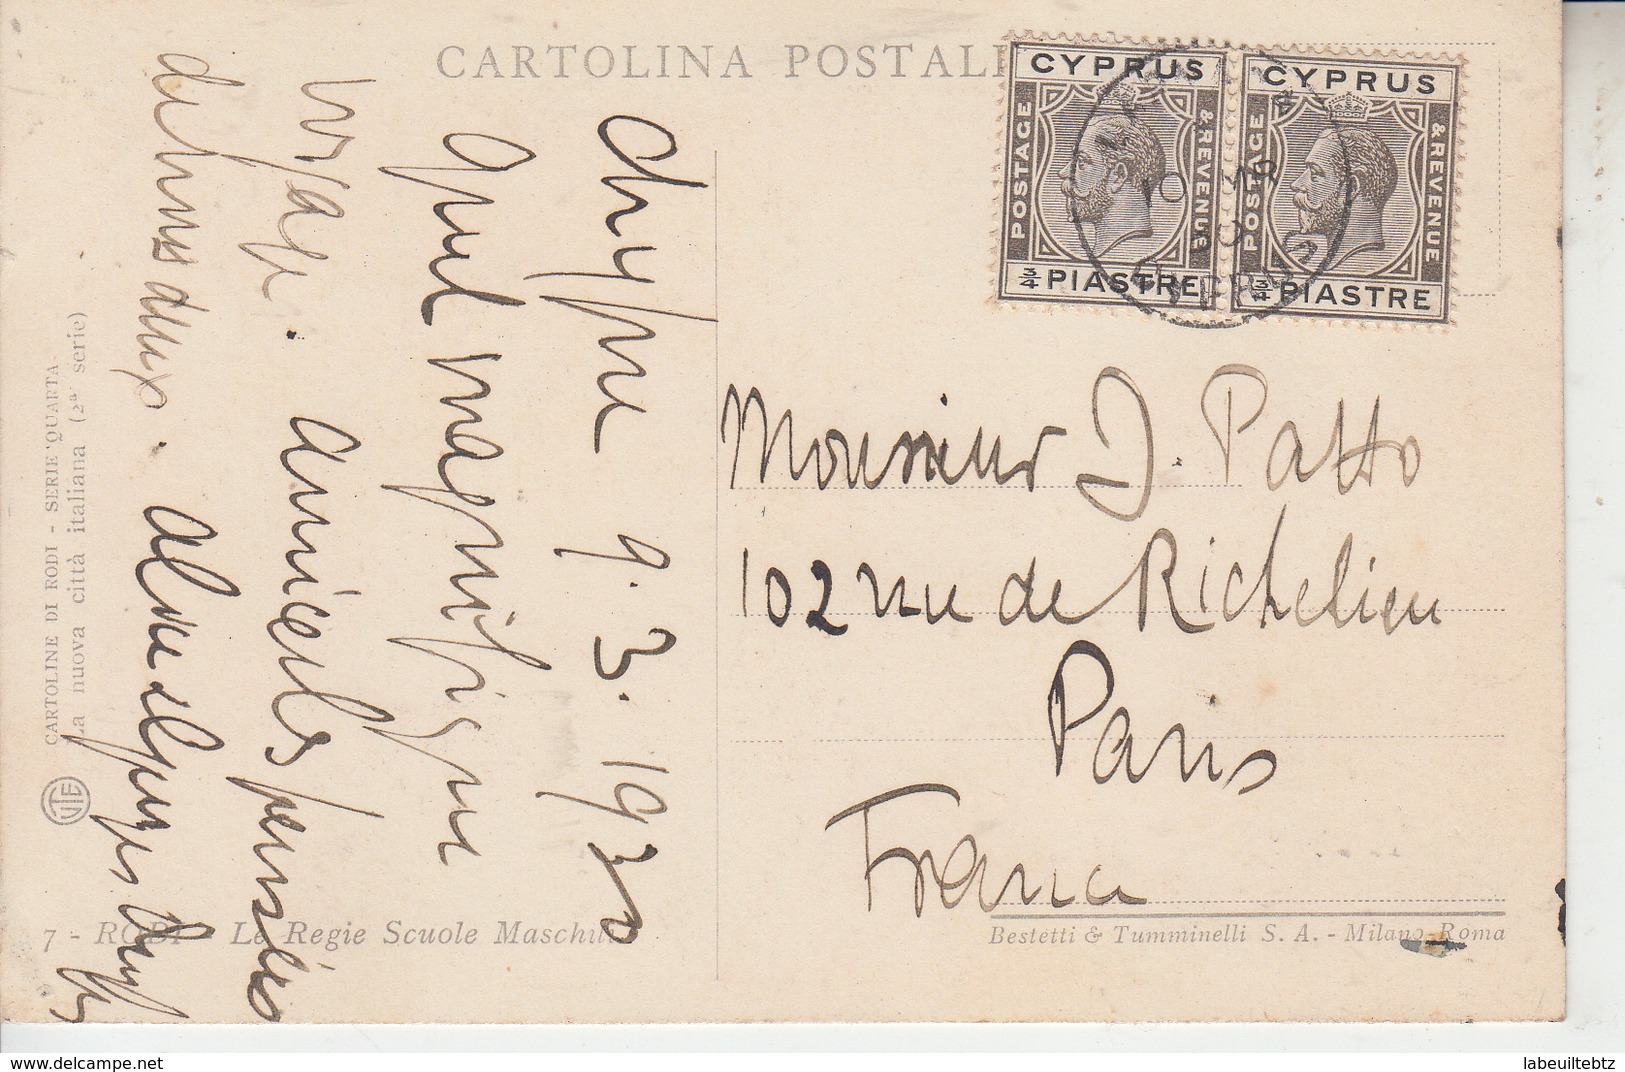 CARTOLINA POSTALE
CYPRUS
POSTAGE
& REVENUE
3/4 PIASTRE
CYPRUS
POSTAGE
& REVENUE
3/4 PIASTRE
10 MR
30
CYPRUS
Chypre 9.3.1930
Quel magnifique
voyage. Amicales pensées
de nous deux.
Monsieur J. Patto
102 rue de Richelieu
Paris
France
CARTOLINE DI RODI - SERIE QUARTA
La nuova città italiana (2ª serie)
7 - RODI - Le Regie Scuole Maschili
Bestetti & Tumminelli S. A. - Milano-Roma
delcampe.net
labeuiltebtz